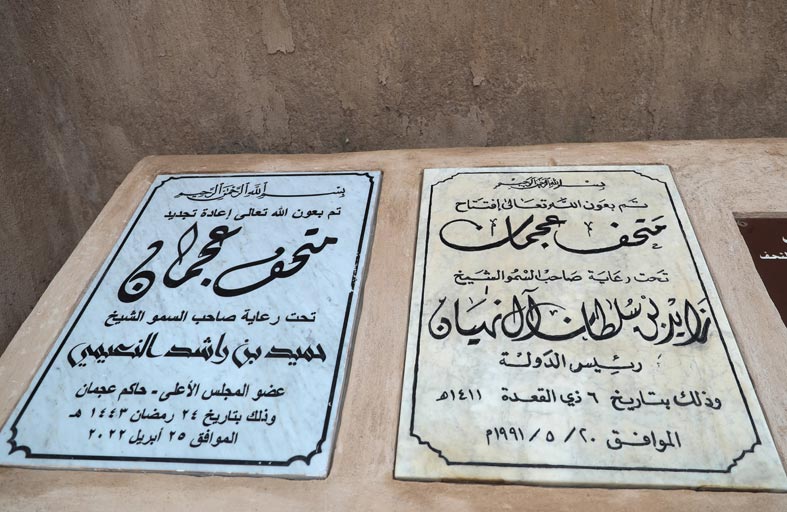 بسم الله الرحمن الرحيم
تم بعون الله تعالى إفتتاح
متحف عجمان
تحت رعاية صاحب السمو الشيخ
زايد بن سلطان آل نهيان
رئيس الدولة
وذلك بتاريخ ٦ ذي القعدة ١٤١١هـ
الموافق ٢٠ / ٥ / ١٩٩١م
بسم الله الرحمن الرحيم
تم بعون الله تعالى إعادة تجديد
متحف عجمان
تحت رعاية صاحب السمو الشيخ
حميد بن راشد النعيمي
عضو المجلس الأعلى - حاكم عجمان
وذلك بتاريخ ٢٤ رمضان ١٤٤٣ هـ
الموافق ٢٥ أبريل ٢٠٢٢